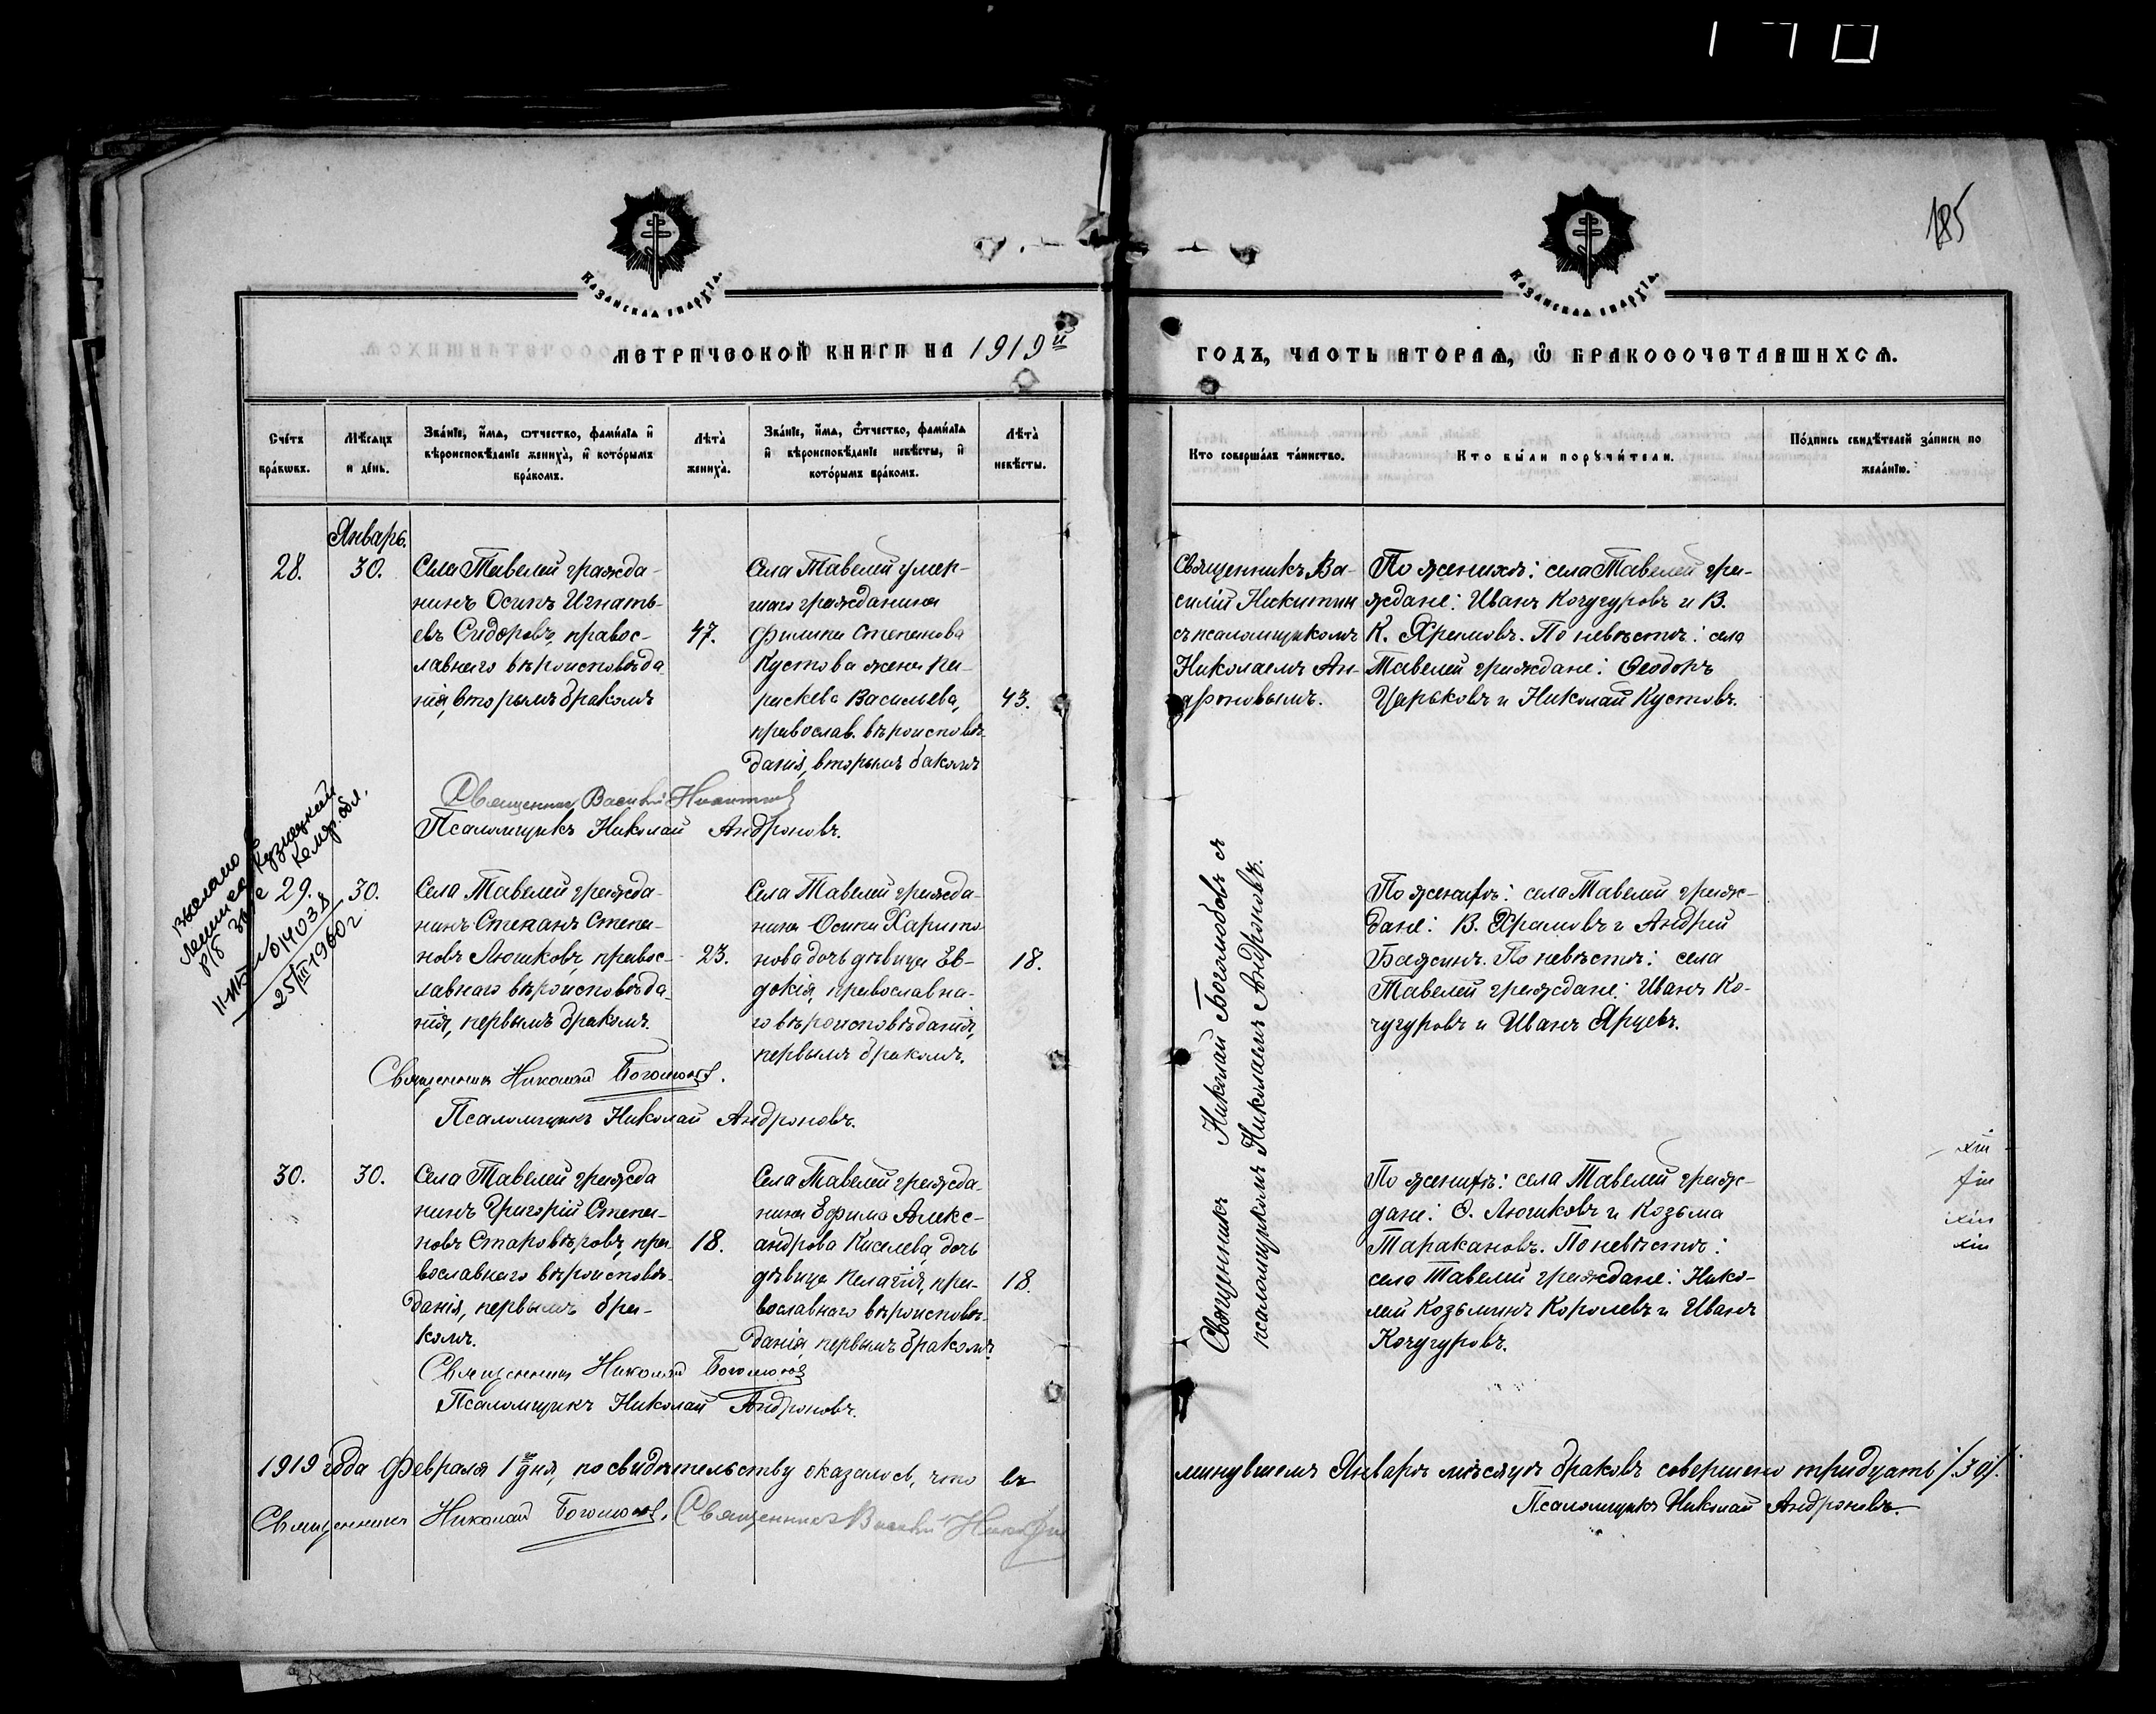 170
185
Казанская епархїа.
Казанская епархїа.
МЕТРИЧЕСКОЙ КНИГИ НА 1919й
ГОДЪ, ЧАСТЬ ВТОРАѦ, Ѿ БРАКОСОЧЕТАВШИХСѦ.
Счетъ браковъ.
Мѣсяцъ и день.
Званїе, имѧ, ѿтчество, фамилїа и вѣроисповѣданїе жениха, и которымъ бракомъ.
Лѣта жениха.
Званїе, имѧ, ѿтчество, фамилїа и вѣроисповѣданїе невѣсты, и которымъ бракомъ.
Лѣта невѣсты.
Кто совершалъ таинство.
Кто были поручители.
Подпись свидѣтелей записи по желанїю.
Январь.
28.
30.
Села Тавелей гражда-
нинъ Осипъ Игнать-
евъ Сидоровъ, правос-
лавнаго вѣроисповѣда
нія, вторымъ бракомъ
47.
Села Тавелей умер-
шаго гражданина
Филиппа Степанова
Кустова жена Па-
раскева Васильева,
православ. вѣроисповѣ-
данія, вторымъ бакомъ
43.
Священникъ Ва-
силій Никитин
съ псаломщикомъ
Николаемъ Ан-
дроновымъ.
По женихѣ: села Тавелей гра-
ждане: Иванъ Кочугуровъ и В.
К. Храмовъ. По невѣстѣ: села
Тавелей граждане: Ѳеодоръ
Царьковъ и Николай Кустовъ.
Священник Василій Никитин
Псаломщикъ Николай Андроновъ.
25/III 1960 г
29.
30.
Села Тавелей гражда-
нинъ Степанъ Степа-
новъ Люшковъ, правос-
лавнаго вѣроисповѣда-
нія, первымъ бракомъ.
23.
Села Тавелей гражда-
нина Осипа Харито
нова дочь дѣвица Ев-
докія, православна-
го вѣроисповѣданія,
первымъ бракомъ.
18.
Священникъ Николай Боголюбовъ съ
псаломщикомъ Николаемъ Андроновъ.
По женихѣ: села Тавелей граж-
дане: В. Храмовъ и Андрей
Бажинъ. По невѣстѣ: села
Тавелей граждане: Иванъ Ко-
чугуровъ и Иванъ Ярцевъ.
Священникъ Николай Боголюбов.
Псаломщикъ Николай Андроновъ.
30.
30.
Села Тавелей гражда
нинъ Григорій Степа-
новъ Старовѣровъ, пра-
вославнаго вѣроисповѣ-
данія, первымъ бра-
комъ.
18.
Села Тавелей гражда-
нина Ефима Алекс-
андрова Киселева, дочь
дѣвица Пелагія, пра-
вославнаго вѣроисповѣ-
данія первымъ бракомъ.
18.
По женихѣ: села Тавелей граж-
дане: Ѳ. Люшковъ и Козьма
Таракановъ. По невѣстѣ:
села Тавелей граждане: Нико-
лай Козьминъ Королевъ и Иванъ
Кочугуровъ.
Священникъ Николай Боголюбов
Псаломщикъ Николай Андроновъ.
1919 года Февраля 1го дня, по свидѣтельству оказалось, что въ минувшемъ Январѣ мѣсяцѣ браковъ совершено тридцать /.30/.
Священникъ Николай Боголюбов. Священникъ Василій Никитин
Псаломщикъ Николай Андроновъ.